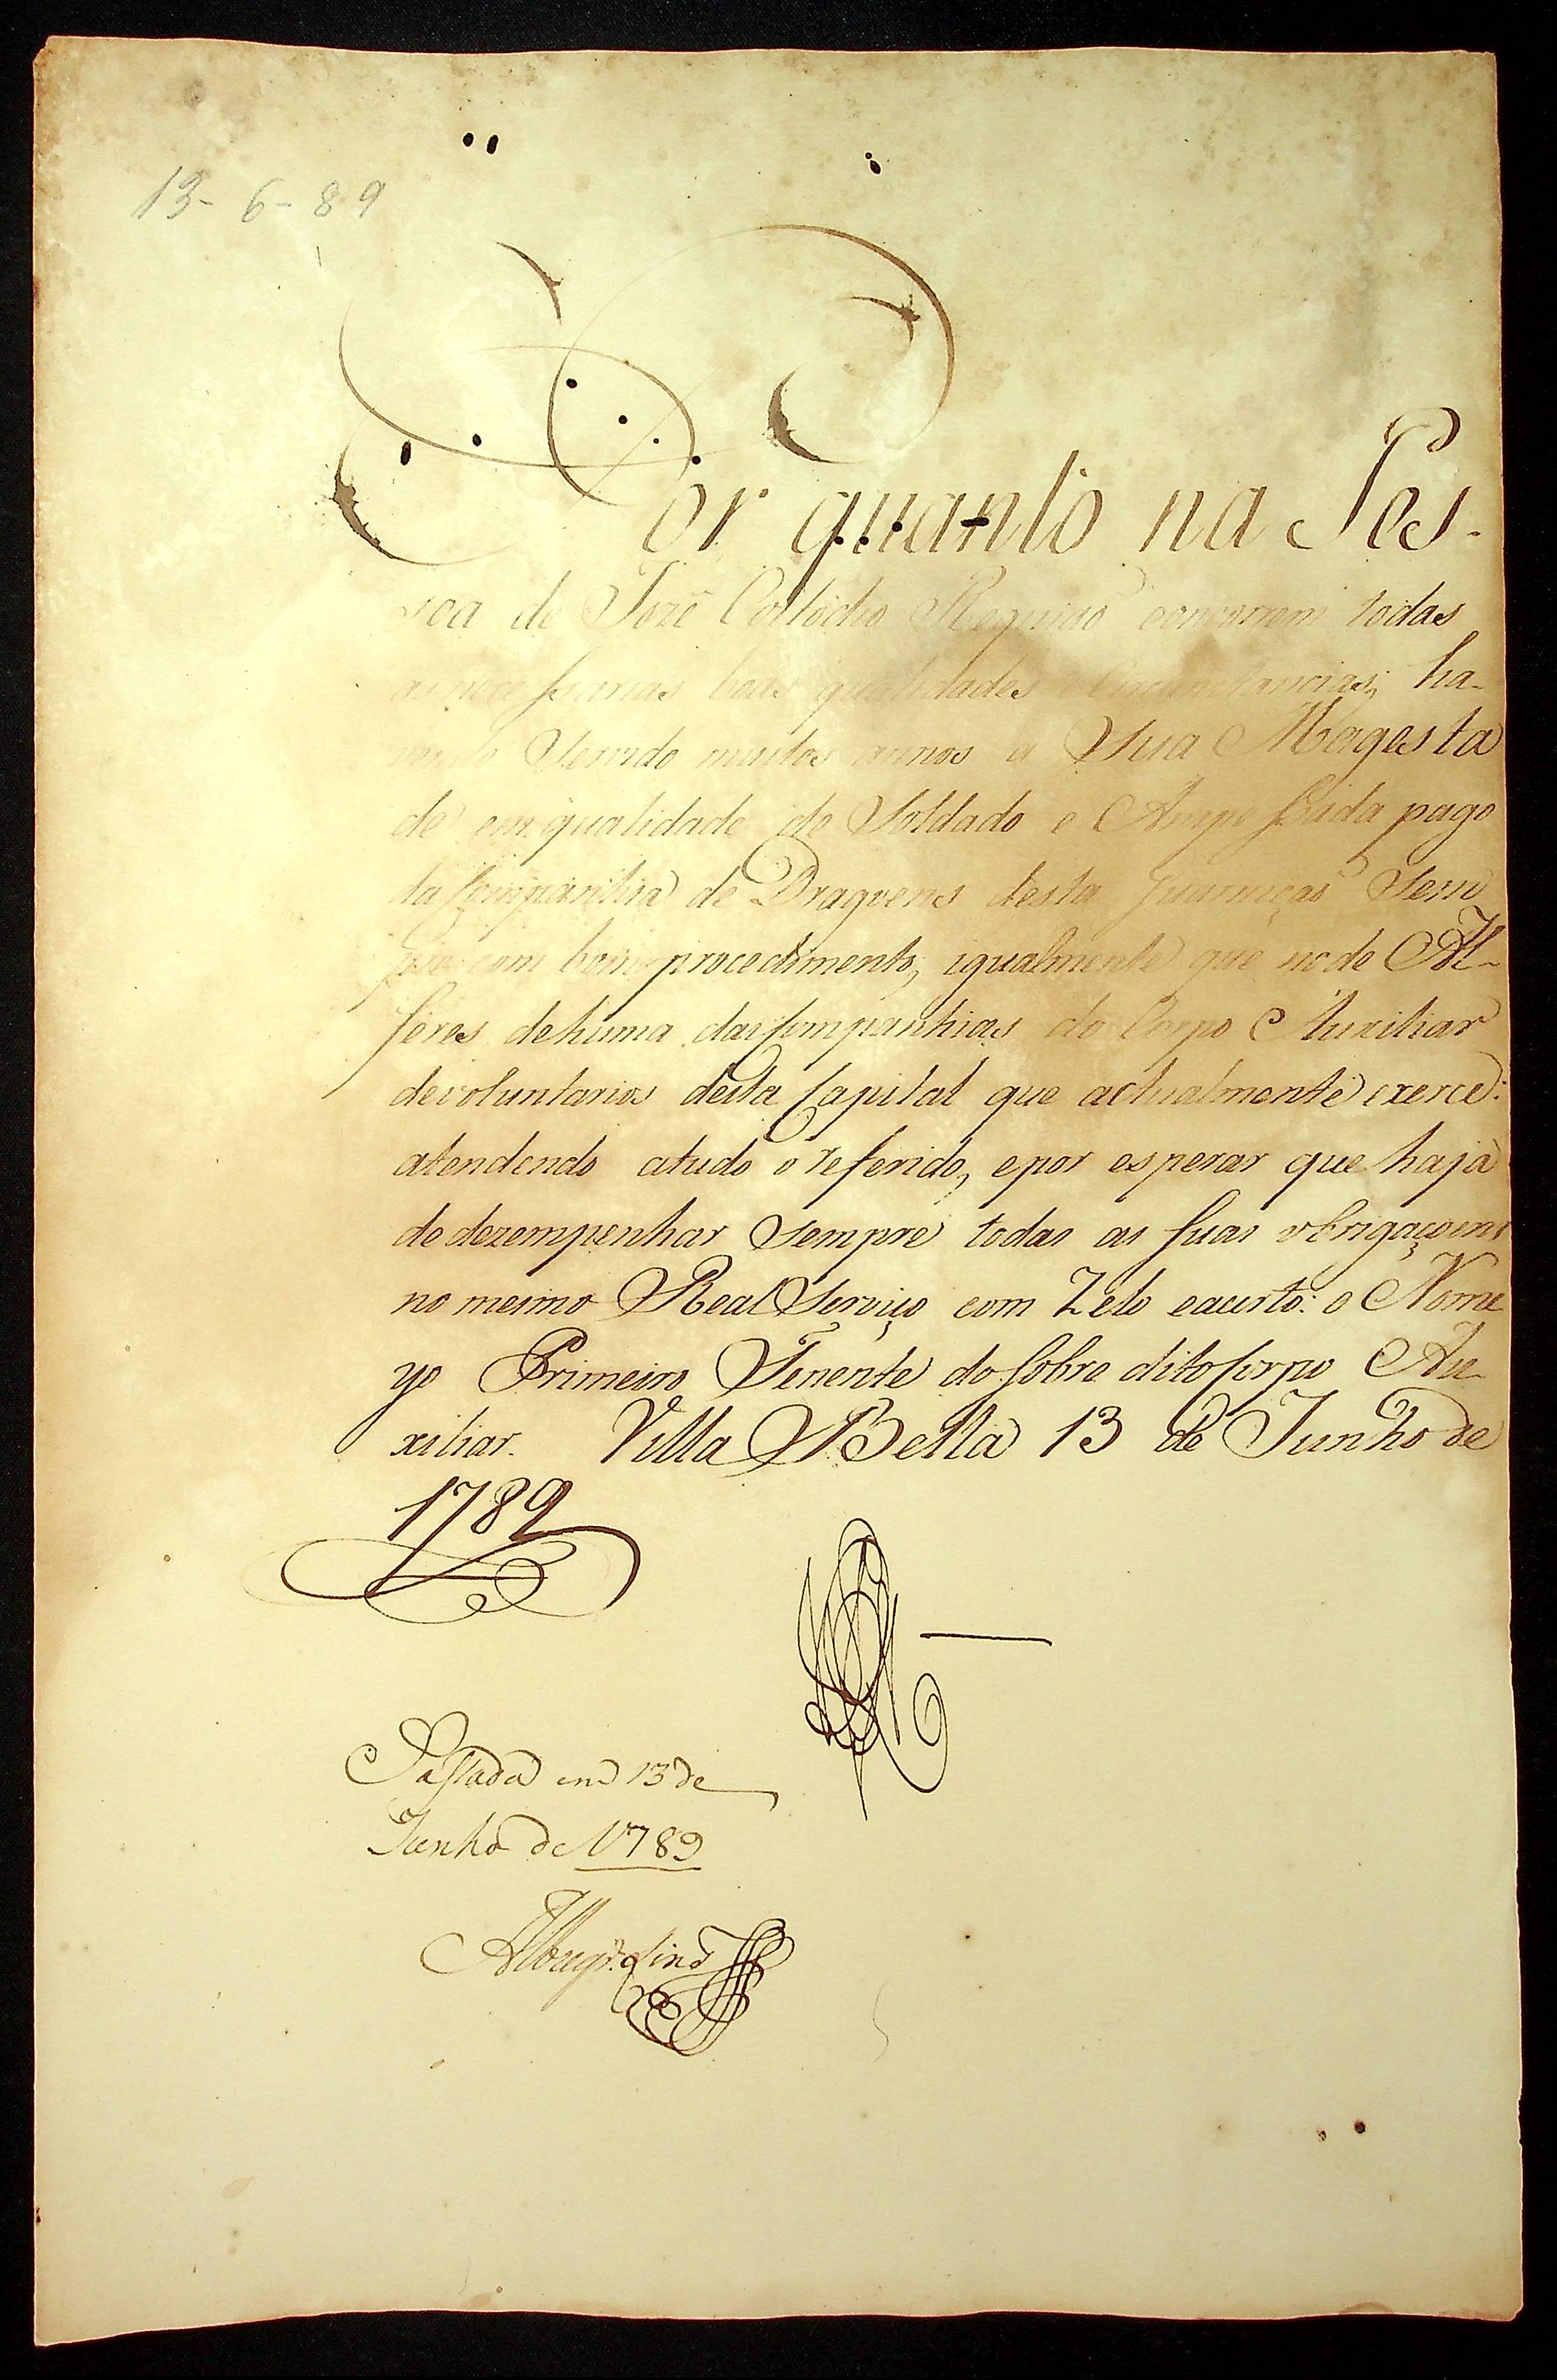 13-6-89
Por quanto na Pes-
soa de Jozé Collodio Requiao concorrem todas
as necessarias boas qualidades e Circunstancias, ha-
vendo Servido muitos annos a Sua Magesta
de em qualidade de Soldado e Anspessada pago
da Companhia de Dragoens desta Guarnição Sem
pre com bom procedimento, igualmente que no de Al-
feres dehuma das Companhias do Corpo Auxiliar
devoluntarios desta Capital que actualmente exerce:
atendendo atudo o referido, epor esperar que haja
de dezempenhar sempre todas as suas obrigaçoens
no mesmo Real Serviço com Zelo eacerto: o Nome
yo Primeiro Tenente do Sobre dito Corpo Au-
xiliar. Villa Bella 13 de Junho de
1789
Passada em 13 de
Junho de 1789